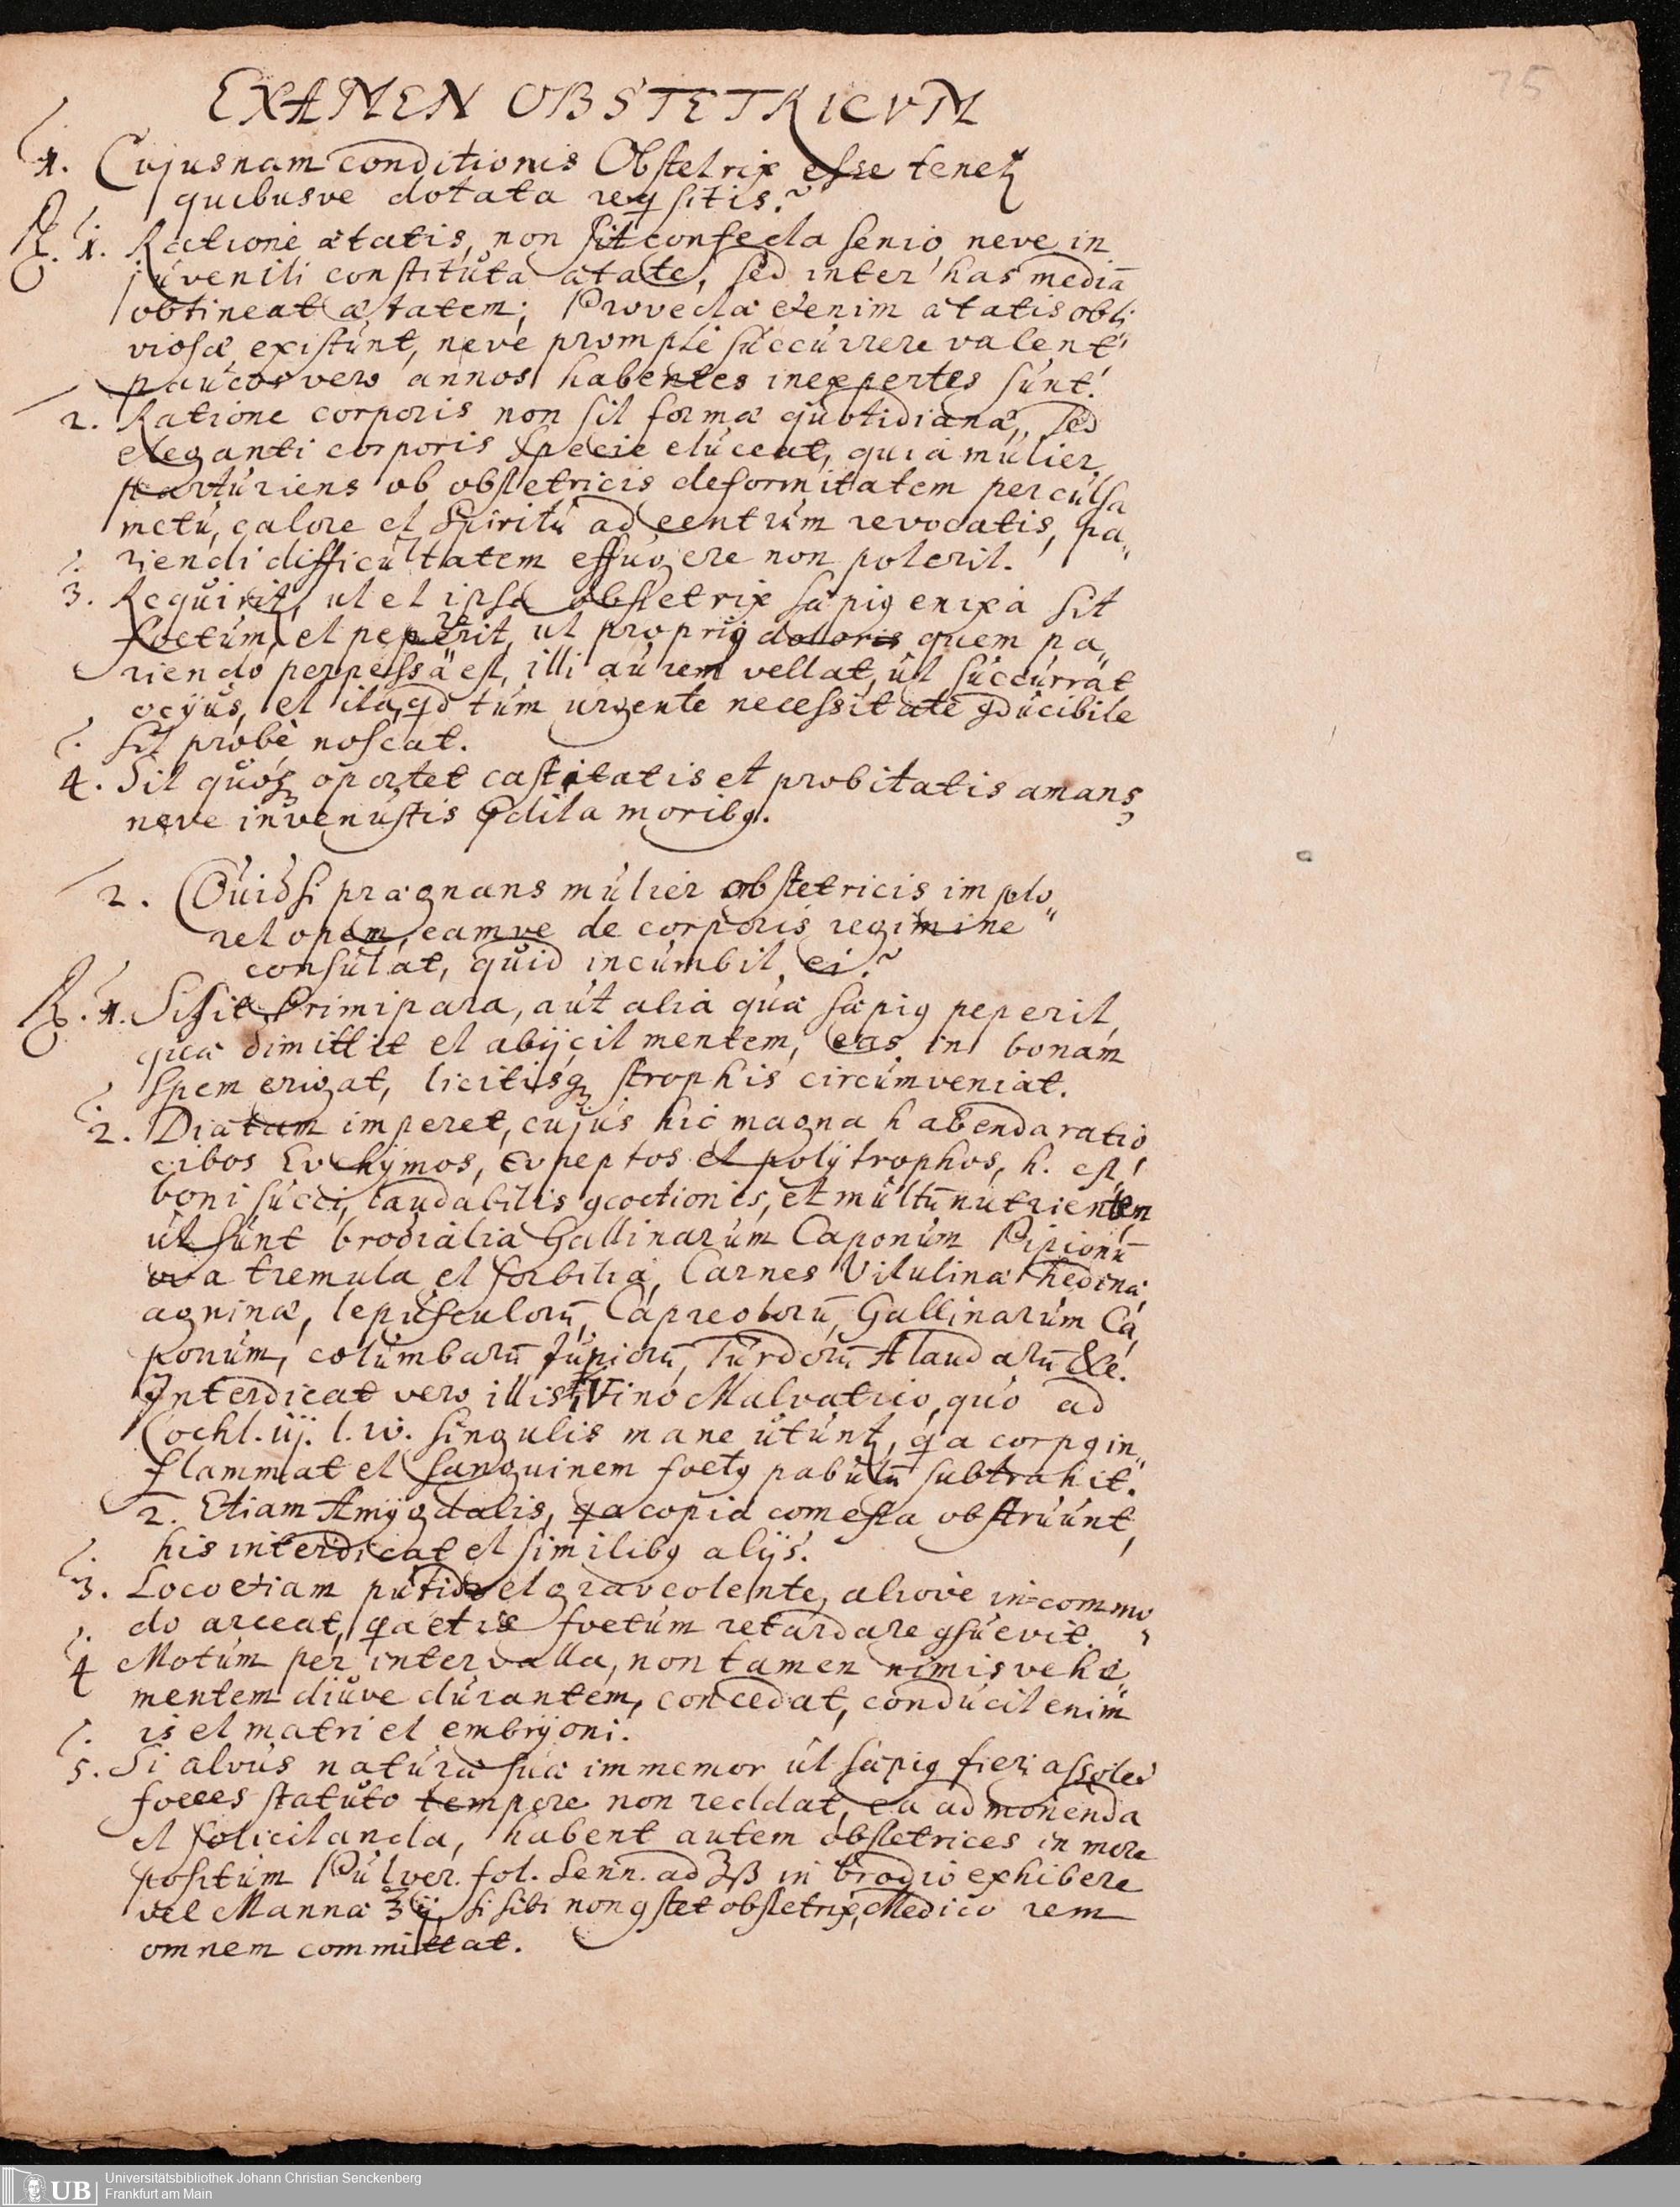 75
EXAMEN OBSTETRICVM
1. Cujusnam conditionis Obstetrix esse tenetꝫ
quibusve dotata reqsitis?
R. 1. Ratione ætatis, non sit confecta senio, neve in
juvenili constituta ætate, sed inter has mediā
obtineat ætatem; Provectæ etenim ætatis obli
viosæ existunt, neve promptè succurrere valent
paucos vero annos habentes inexpertes sunt.
2. Ratione corporis non sit formæ quotidianæ, sed
eleganti corporis specie eluceat, quia mulier
parturiens ob obstetricis deformitatem perculsa
metu, calore et spiritu ad centrum revocatis, pa„
riendi difficultatem effugere non poterit.
3. Requirit, ut et ipsa obstetrix sæpiꝰ enixa sit
foetum, et pepererit, ut propriꝰ doloris quem pa„
riendo perpessa est, illi aurem vellat, ut succurrat
ocijus, et ita, qd tum urgente necessitate ꝯducibile
sit probè noscat.
4. Sit quoqꝫ oportet castitatis et probitatis amans,
neve invenustis p̄dita moribꝰ.
2. Quid si prægnans mulier obstetricis implo„
ret opem, eamve de corporis regimine
consulat, quid incumbit ei?
R. 1. Si sit Primipara, aut alia quæ sæpiꝰ peperit,
quæ dimittit et abijcit mentem, eas in bonam
spem erigat, licitisqꝫ strophis circumveniat.
2. Diætam imperet, cujus hic magna habenda ratio
cibos Euchymos, Eupeptos et polÿtrophos, h. est,
boni succi, laudabilis ꝯcoctionis, et multū nutrientem
ut sunt brodialia Gallinarum Caponum Pipionū
ova tremula et sorbilia, Carnes Vitulinæ hedinæ
agninæ, lepusculorū, Capreolorū, Gallinarum Ca
ponum, columbarū Turdorū Alaudarū &c.
Interdicat vero illis 1. Vino Malvatico, quo ad
Cochl. iij. l. iv. singulis mane utuntꝫ, qa corpꝰ in„
flammat et sanguinem foetꝰ pabulū subtrahit.
2. Etiam Amÿgdalis, qa copia comesta obstruunt,
his interdicat et similibꝰ alijs.
3. Loco etiam putido et graveolente, aliove incommo
do arceat, qa et is foetum retardare ꝯsuevit.
4 Motum per intervalla, non tamen nimis vehe„
mentem diuve durantem, concedat, conducit enim
is et matri et embrÿoni.
5. Si alvus naturæ suæ immemor ut sæpiꝰ fieri assolet
foeces statuto tempore non reddat, ea admonenda
et solicitanda, habent autem obstetrices in more
positum Pulver. fol. Senn. ad ʒß in brodio exhibere
vel Manna ʒij, si sibi non ꝯstet obstetrix, Medico rem
omnem committat.
UB
Universitätsbibliothek Johann Christian Senckenberg
Frankfurt am Main